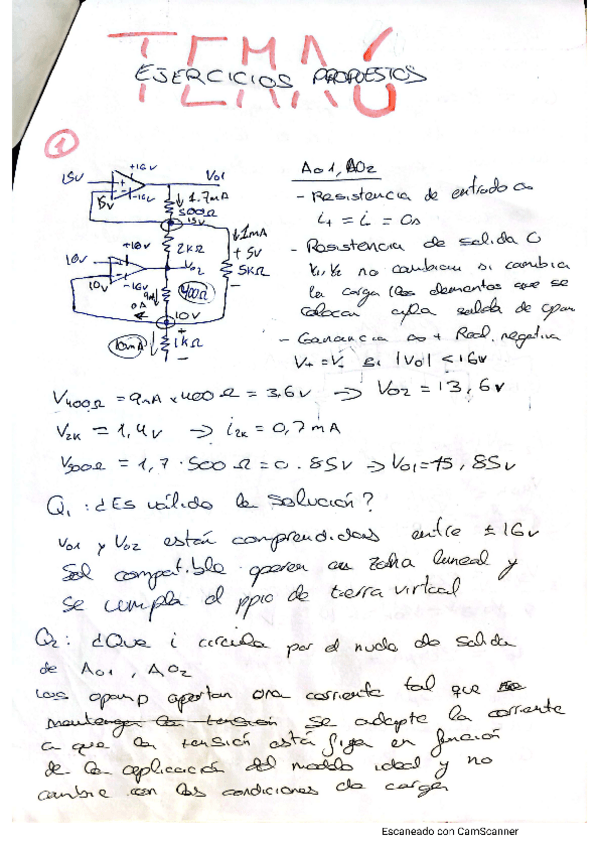 TEMA 6
EJERCICIOS PROPUESTOS
1
+16V
15V
Vo1
15V
-16V
↓1.7mA
500Ω
15V
↓1mA
+
5V
5KΩ
-
2KΩ
10V
+16V
Vo2
10V
-16V
9mA
400Ω
0A
10V
+
10mA
↓
1KΩ
-
Ao1, AO2
- Resistencia de entrada ∞
i+ = i- = 0A
- Resistencia de salida 0
V1, V2 no cambian si cambia
la carga (los elementos que se
colocan a la salida de opam
- Ganancia ∞ + Real. negativa
V+ = V- si |Vo| < 16V
V400Ω = 9mA x 400Ω = 3.6V → VO2 = 13,6V
V2K = 1,4V → i2K = 0,7mA
V500Ω = 1,7 · 500Ω = 0.85V → Vo1 = 15,85V
Q1: ¿Es válida la solución?
Vo1 y Vo2 están comprendidas entre ±16V
Sol compatible operan en zona lineal y
se cumpla el ppio de tierra virtual
Q2: ¿Que i circula por el nudo de salida
de AO1, AO2
Los opamp aportan una corriente tal que
mantenga la tensión se adapte la corriente
a que la tensión está fija en función
de la aplicación del modelo ideal y no
cambie con las condiciones de carga
Escaneado con CamScanner